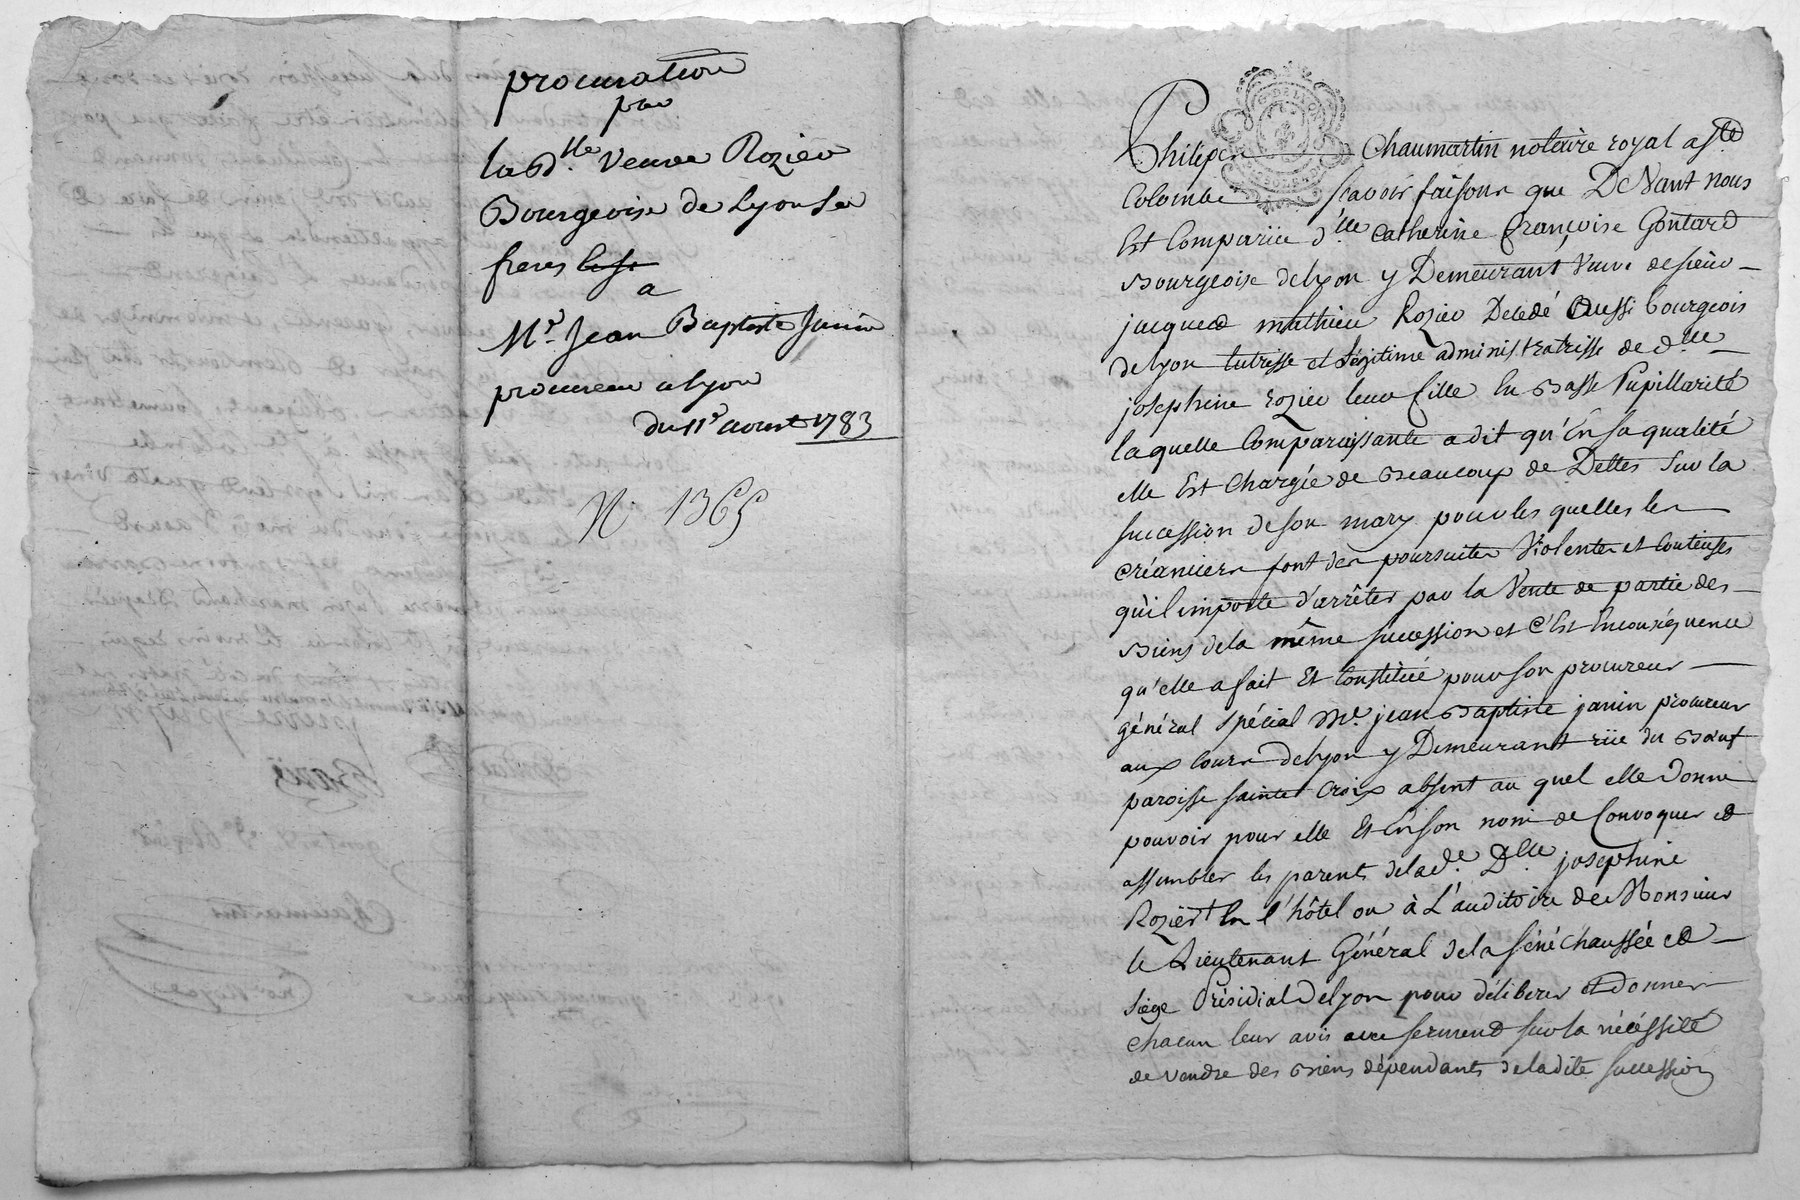 procuration
par
la D.lle veuve Rozier
Bourgeoise de Lyon
freres
a
Mr. Jean Baptiste Janin
procureur a Lyon
du 11e aoust 1783
N 1365
G. DE LYON
Philipe Chaumartin notaire royal a Ste
Colombe scavoir faisons que Devant nous
Est Comparüe d.lle Catherine françoise Gontard
Bourgeoise de lyon y Demeurant Veuve de sieur
jacques mathieu Rozier Décédé aussi bourgeois
de lyon tutrisse et légitime administratrisse de d.lle
josephine rozier leur fille En Basse Pupillarité
laquelle Comparaissante a dit qu'En sa qualité
elle Est Chargée de Beaucoup de Dettes sur la
succession de son mary pour les quelles les
créanciers font des poursuites Violentes et Couteuses
qu'il importe d'arrêter par la Vente de partie des
Biens de la même succession et c'Est En conséquence
qu'elle a fait Et Constitüé pour son procureur
général spécial Me. jean Baptiste janin procureur
aux Cours de lyon y Demeurant rüe du Bœuf
paroisse sainte Croix absent au quel elle Donne
pouvoir pour elle Et En son nom de Convoquer et
assembler les parents de lad.e D.lle josephine
Rozier En l'hôtel ou à L'auditoire de Monsieur
le Lieutenant Général de la sénéchaussée et
siège Présidial de lyon pour délibérer et Donner
chacun leur avis avec serment sur la nécéssité
de vendre des Biens dépendants de la dite succession